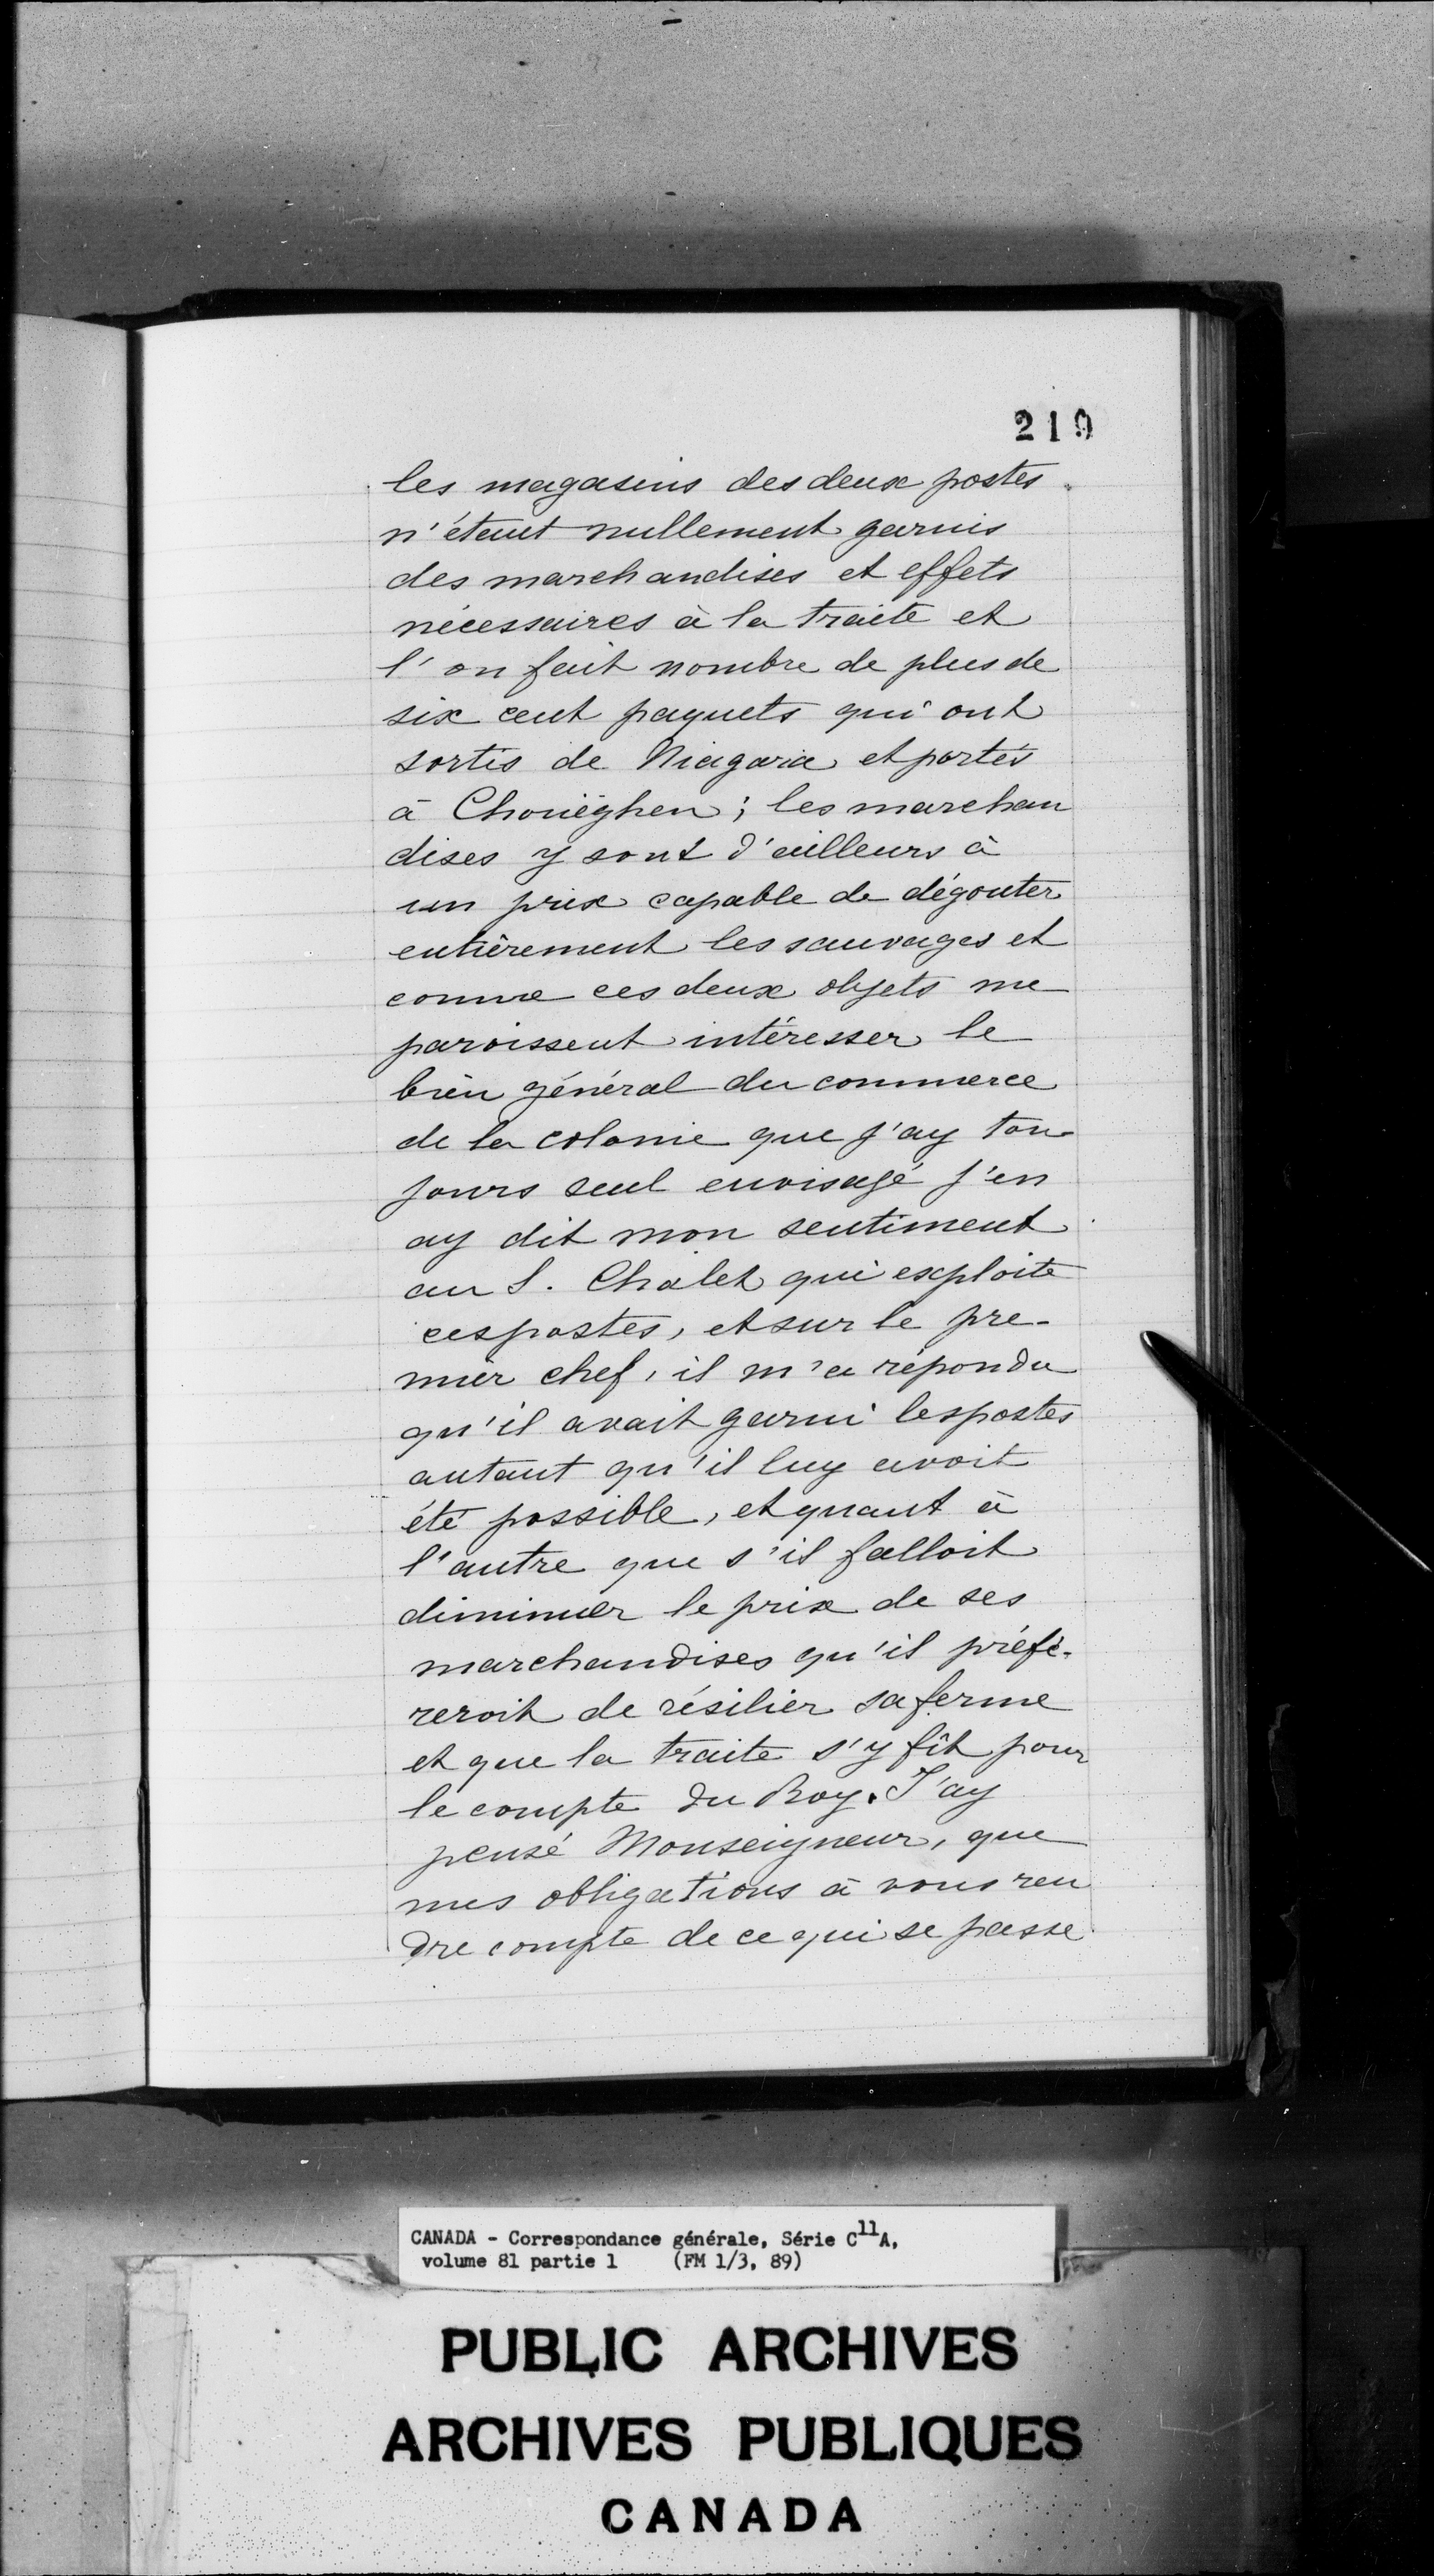 219
les magasins des deux postes
n'étant nullement garnis
des marchandises et effets
nécessaires à la traite et
l'on fait nombre de plus de
six cent paquets qui ont
sortis de Niagara et portés
à Chouëghen; les marchan
dises y sont d'ailleurs à
un prix capable de dégouter
entièrement les sauvages et
comme ces deux objets me
paroissent intéresser le
bien général du commerce
de la colonie que j'ay tou-
jours seul envisagé j'en
ay dit mon sentiment
au S. Chalet qui exploite
ces postes, et sur le pre-
mier chef, il m'a répondu
qu'il avait garni les postes
autant qu'il luy avoit
été possible, et quant à
l'autre que s'il falloit
diminuer le prix de ses
marchandises qu'il préfé-
reroit de résilier sa ferme
et que la traite s'y fit pour
le compte du Roy. J'ay
pensé Monseigneur, que
mes obligations à vous ren
dre compte de ce qui se passe
CANADA - Correspondance générale, Série C11A,
volume 81 partie 1 (FM 1/3, 89)
PUBLIC ARCHIVES
ARCHIVES PUBLIQUES
CANADA